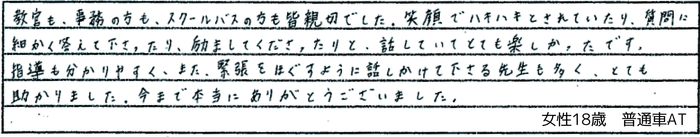 教官も、事務の方も、スクールバスの方も皆親切でした。笑顔でハキハキとされていたり、質問に
細かく答えて下さったり、励ましてくださったりと、話していてとても楽しかったです。
指導も分かりやすく、また、緊張をほぐすように話しかけて下さる先生も多く、とても
助かりました。今まで本当にありがとうございました。
女性18歳　普通車AT